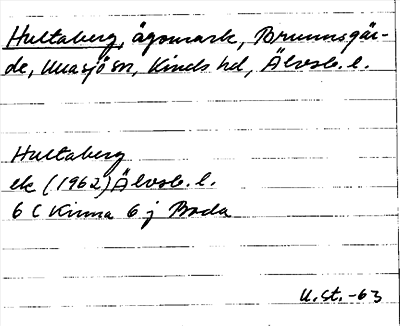 Hultaberg, ägomark, Brunnsgär-
de, Mjasjö sn, Kinds hd, Älvsb. l.
Hultaberg
ek (1962) Älvsb. l.
6 C Kinna 6 j Boda
U.St. -63